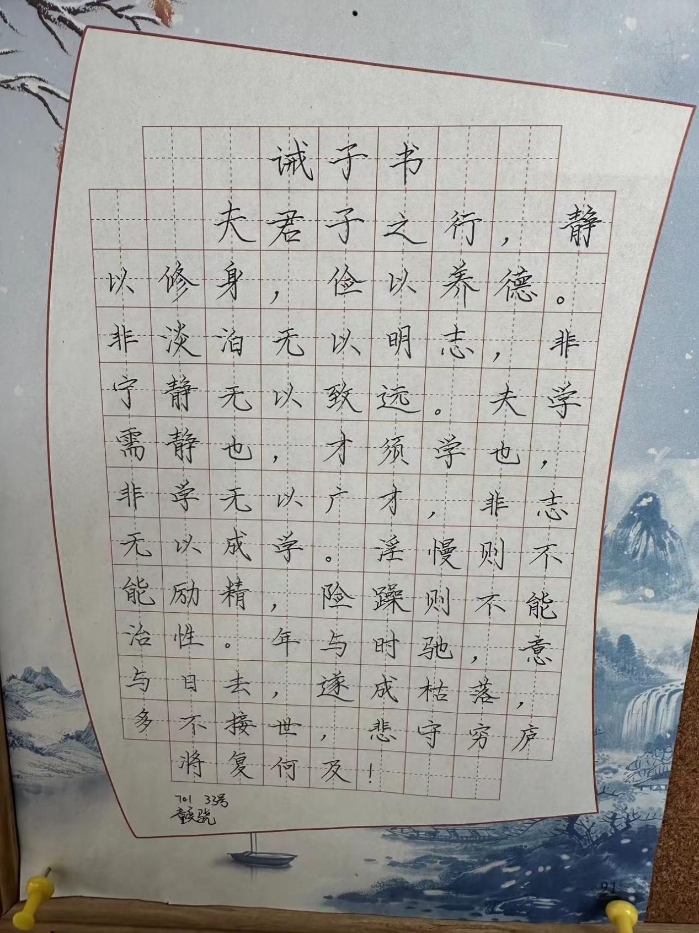 诫子书
夫君子之行，静
以修身，俭以养德。
非淡泊无以明志，非
宁静无以致远。夫学
需静也，才须学也，
非学无以广才，非志
无以成学。淫慢则不
能励精，险躁则不能
治性。年与时驰，意
与日去，遂成枯落，
多不接世，悲守穷庐
将复何及！
701 33号
91